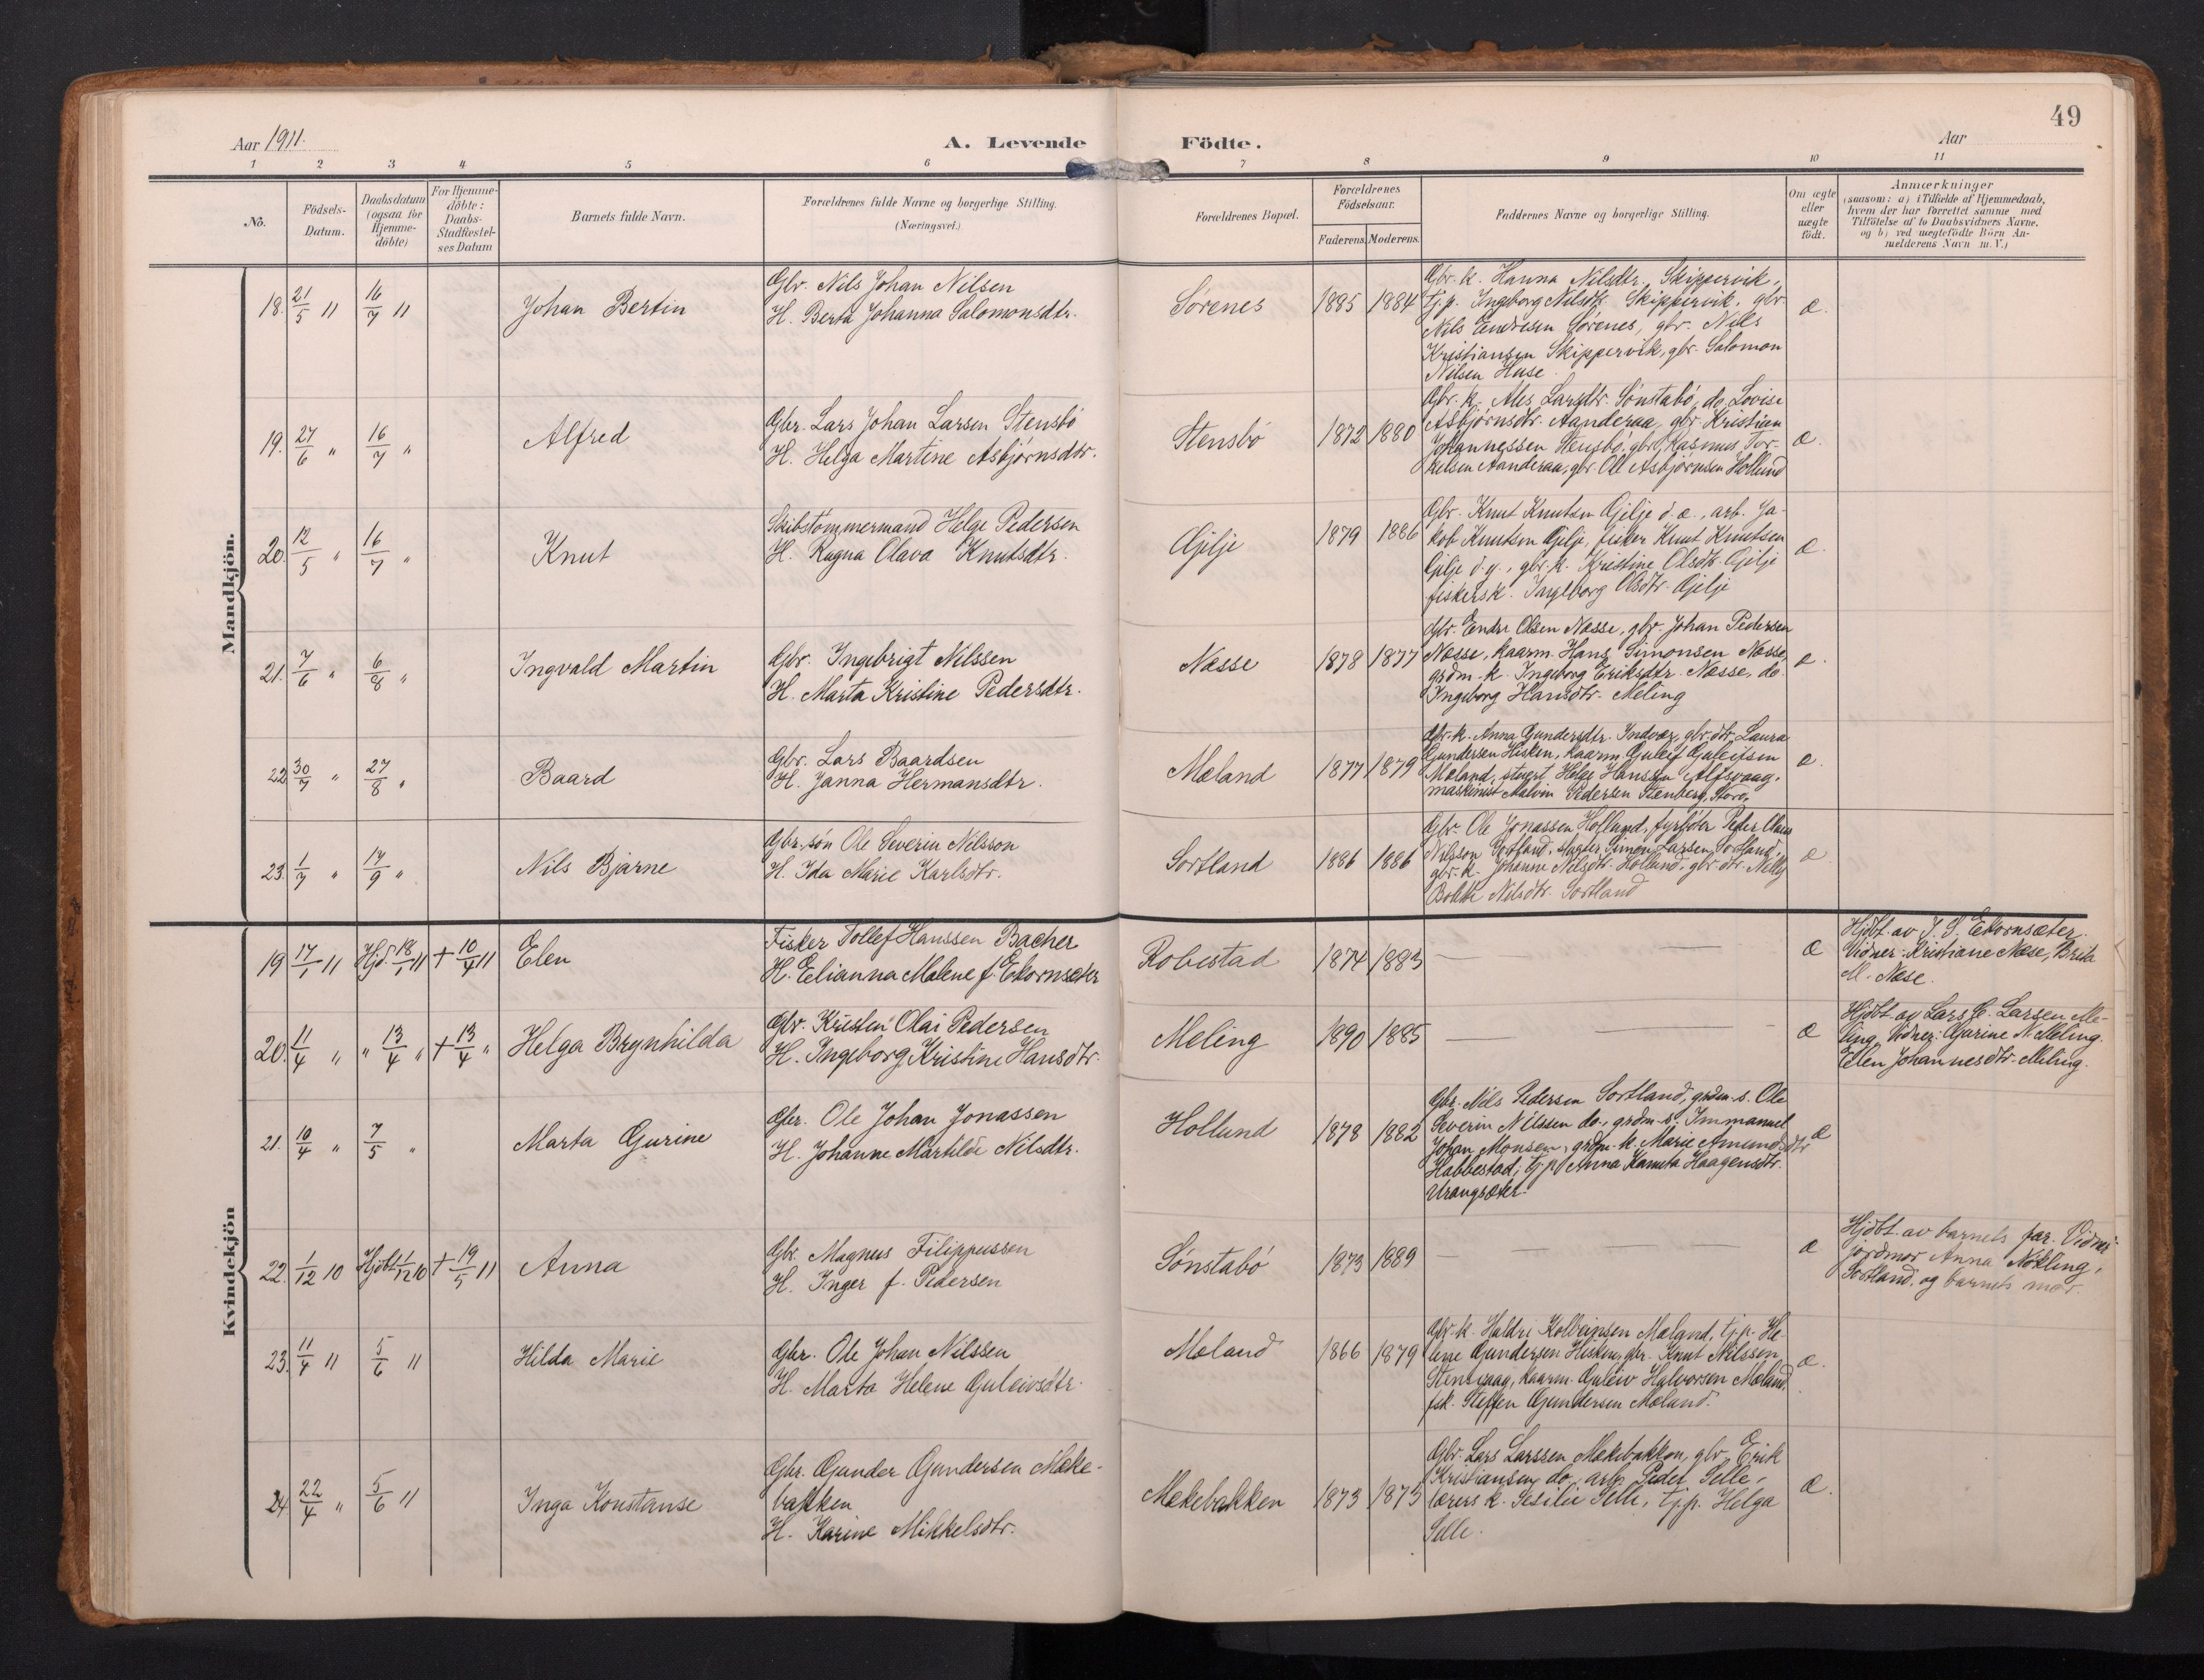 49
Aar 1911.
A. Levende
Födte.
Aar
1 2 3 4 5 6 7 8 9 10 11
No.
Födsels-
Datum.
Daabsdatum
(ogsaa for
Hjemme-
döbte)
For Hjemme-
döbte:
Daabs-
Stadfestel-
ses Datum
Barnets fulde Navn.
Forældrenes fulde Navne og borgerlige Stilling.
(Næringsvei.)
Forældrenes Bopæl.
Forældrenes
Födselsaar.
Faderens. Moderens.
Faddernes Navne og borgerlig Stilling.
Om ægte
eller
uægte
födt.
Anmærkninger
(saasom: a) i Tilfælde af Hjemmedaab,
hvem der har forrettet samme med
Tilföielse af to Daabsvidners Navne,
og b) ved uægtefödte Börn An-
melderens Navn m. V.)
Mandkjön.
18. 21/5 11 16/7 11
Johan Bertin
Gbr. Nils Johan Nilsen
H. Berta Johanna Salomonsdtr.
Sørenes
1885 1884
Gbr. k. Hanna Nilsdtr. Skippervik,
tj.p. Ingeborg Nilsdtr. Skippervik, gbr.
Nils Endresen Sørenes, gbr. Nils
Kristiansen Skippervik, gbr. Salomon
Nilsen Huse.
æ.
19. 27/6 " 16/7 "
Alfred
Gbr. Lars Johan Larsen Stensbó
H. Helga Martine Asbjørnsdtr.
Stensbó
1872 1880
Gbr. k. Ales Larsdtr. Sónstabó, do. Lovise
Asbjørnsdtr. Aanderaa, gbr. Kristian
Johannessen Stensbó, gbr. Rasmus Tor-
kelsen Aanderaa, gbr. Ole Asbjørnsen Hollund
æ.
20. 12/5 " 16/7 "
Knut
Skibstómmermand Helge Pedersen
H. Ragna Olava Knutsdtr.
Gjilje
1879 1886
Gbr. Knut Knutsen Gjilje d.æ., arb. Ja-
kob Knutsen Gjilje, fisker Knut Knutsen
Gjilje d.y., gbr. k. Kristine Olsdtr. Gjilje
fiskersk. Ingeborg Olsdtr. Gjilje
æ.
21. 7/6 " 6/8 "
Ingvald Martin
Gbr. Ingebrigt Nilssen
H. Marta Kristine Pedersdtr.
Næsse
1878 1877
Gbr. Endre Olsen Næsse, gbr. Johan Pedersen
Næsse, kaarm. Hans Simonsen Næsse,
grdm. k. Ingeborg Eriksdtr. Næsse, do.
Ingeborg Hansdtr. Meling
æ.
22. 30/7 " 27/8 "
Baard
Gbr. Lars Baardsen
H. Janna Hermansdtr.
Mæland
1877 1879
Gbr. k. Anna Gundersdtr. Indvær, gbr. dtr. Laura
Gundersen Hisken, kaarm. Guleif Guleifsen
Mæland, stuert Helge Hanssen Alfsvaag,
maskinist Malvin Pedersen Stenberg, Store,
æ.
23. 1/7 " 17/9 "
Nils Bjarne
Gbr. søn Ole Severin Nilsson
H. Ida Marie Karlsdtr.
Sortland
1886 1886
Gbr. Ole Jonassen Hollund, fyrbóter Peder Claus
Nilsson Sortland, slagter Simon Larsen Sortland,
gbr. k. Johanne Nilsdtr. Hollund, gbr. dtr. Nelly
Bolette Nilsdtr. Sortland
æ
Kvindekjön
19 17/1 11 Hjd. 18/1 11 + 10/4 11
Elen
Fisker Tollef Hanssen Bacher
H. Elianna Malene f. Ekornsæter
Robestad
1874 1883
æ
Hjdbt. av J. S. Ekornsæter.
Vidner: Kristiane Næse, Brita
M. Næse.
20. 11/4 " " 13/4 " + 13/4 "
Helga Brynhilda
Gbr. Kristen Olai Pedersen
H. Ingeborg Kristine Hansdtr.
Meling
1890 1885
æ
Hjdbt. av Lars C. Larsen Me-
ling. Vidner: Gjarine N. Meling.
Elen Johannesdtr. Meling.
21. 10/4 " 7/5 "
Marta Gurine
Gbr. Ole Johan Jonassen
H. Johanne Martilde Nilsdtr.
Hollund
1878 1882
Gbr. Nils Pedersen Sortland, grdm. s. Ole
Severin Nilssen do., grdm. s. Immanuel
Johan Monsen, grdm. k. Marie Amundsdtr
Habbestad, tj.p. Anna Kamita Haagensdtr.
Urangsæter.
æ
22. 1/12 10 Hjdbt. 1/12 10 + 19/5 11
Anna
Gbr. Magnus Filippussen
H. Inger f. Pedersen
Sónstabó
1873 1889
æ
Hjdbt. av barnets far. Vidner:
jordmor Anna Nókling,
Sortland, og barnets mor.
23. 11/4 11 5/6 11
Hilda Marie
Gbr. Ole Johan Nilssen
H. Marta Helene Guleivsdtr.
Mæland
1866 1879
Gbr. k. Haldri Kolbeinsen Mæland, tj.p. He-
lene Gundersen Hisken, gbr. Knut Nilssen
Stensvaag, kaarm. Guleiv Halvorsen Mæland,
fsk. Steffen Gundersen Mæland.
æ.
24. 22/4 " 5/6 11
Inga Konstanse
Gbr. Gunder Gundersen Mæke-
bakken
H. Karine Mikkelsdtr.
Mækebakken
1873 1875
Gbr. Lars Larssen Mækebakken, gbr. Erik
Kristiansen do., arb. Peder Selle,
lærers k. Sesilie Selle, tj.p. Helga
Selle.
æ.